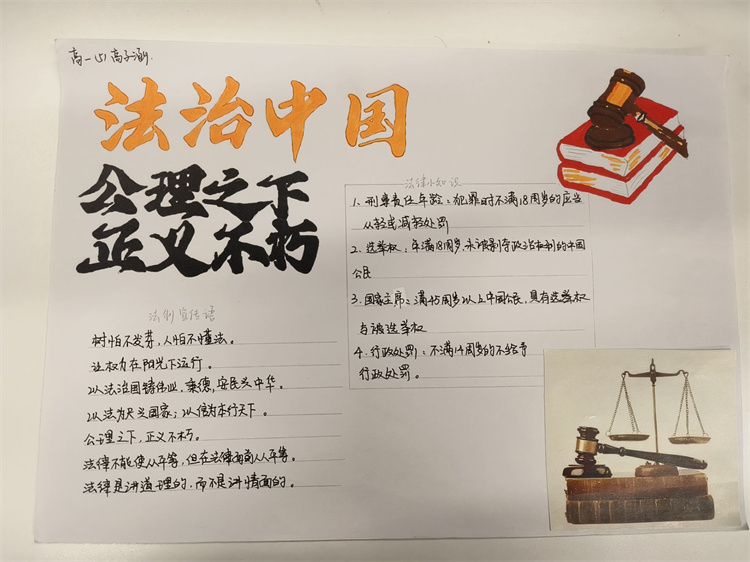 高一(5) 高子涵.
法治中国
公理之下
正义不朽
法制宣传语
树怕不发芽,人怕不懂法。
让权力在阳光下运行。
以从法治国铸伟业,秉德,安民兴中华。
以法为尺义国家;以信为本行天下。
公理之下,正义不朽。
法律不能使人平等,但在法律面前人人平等。
法律是讲道理的,而不是讲情面的。
法律小知识
1、刑事责任年龄:犯罪时不满18周岁的应当
从轻或减轻处罚
2、选举权:年满18周岁,未被剥夺政治权利的中国
公民
3、国家主席:满45周岁以上中国公民,具有选举权
与被选举权
4、行政处罚:不满14周岁的不给予
行政处罚。